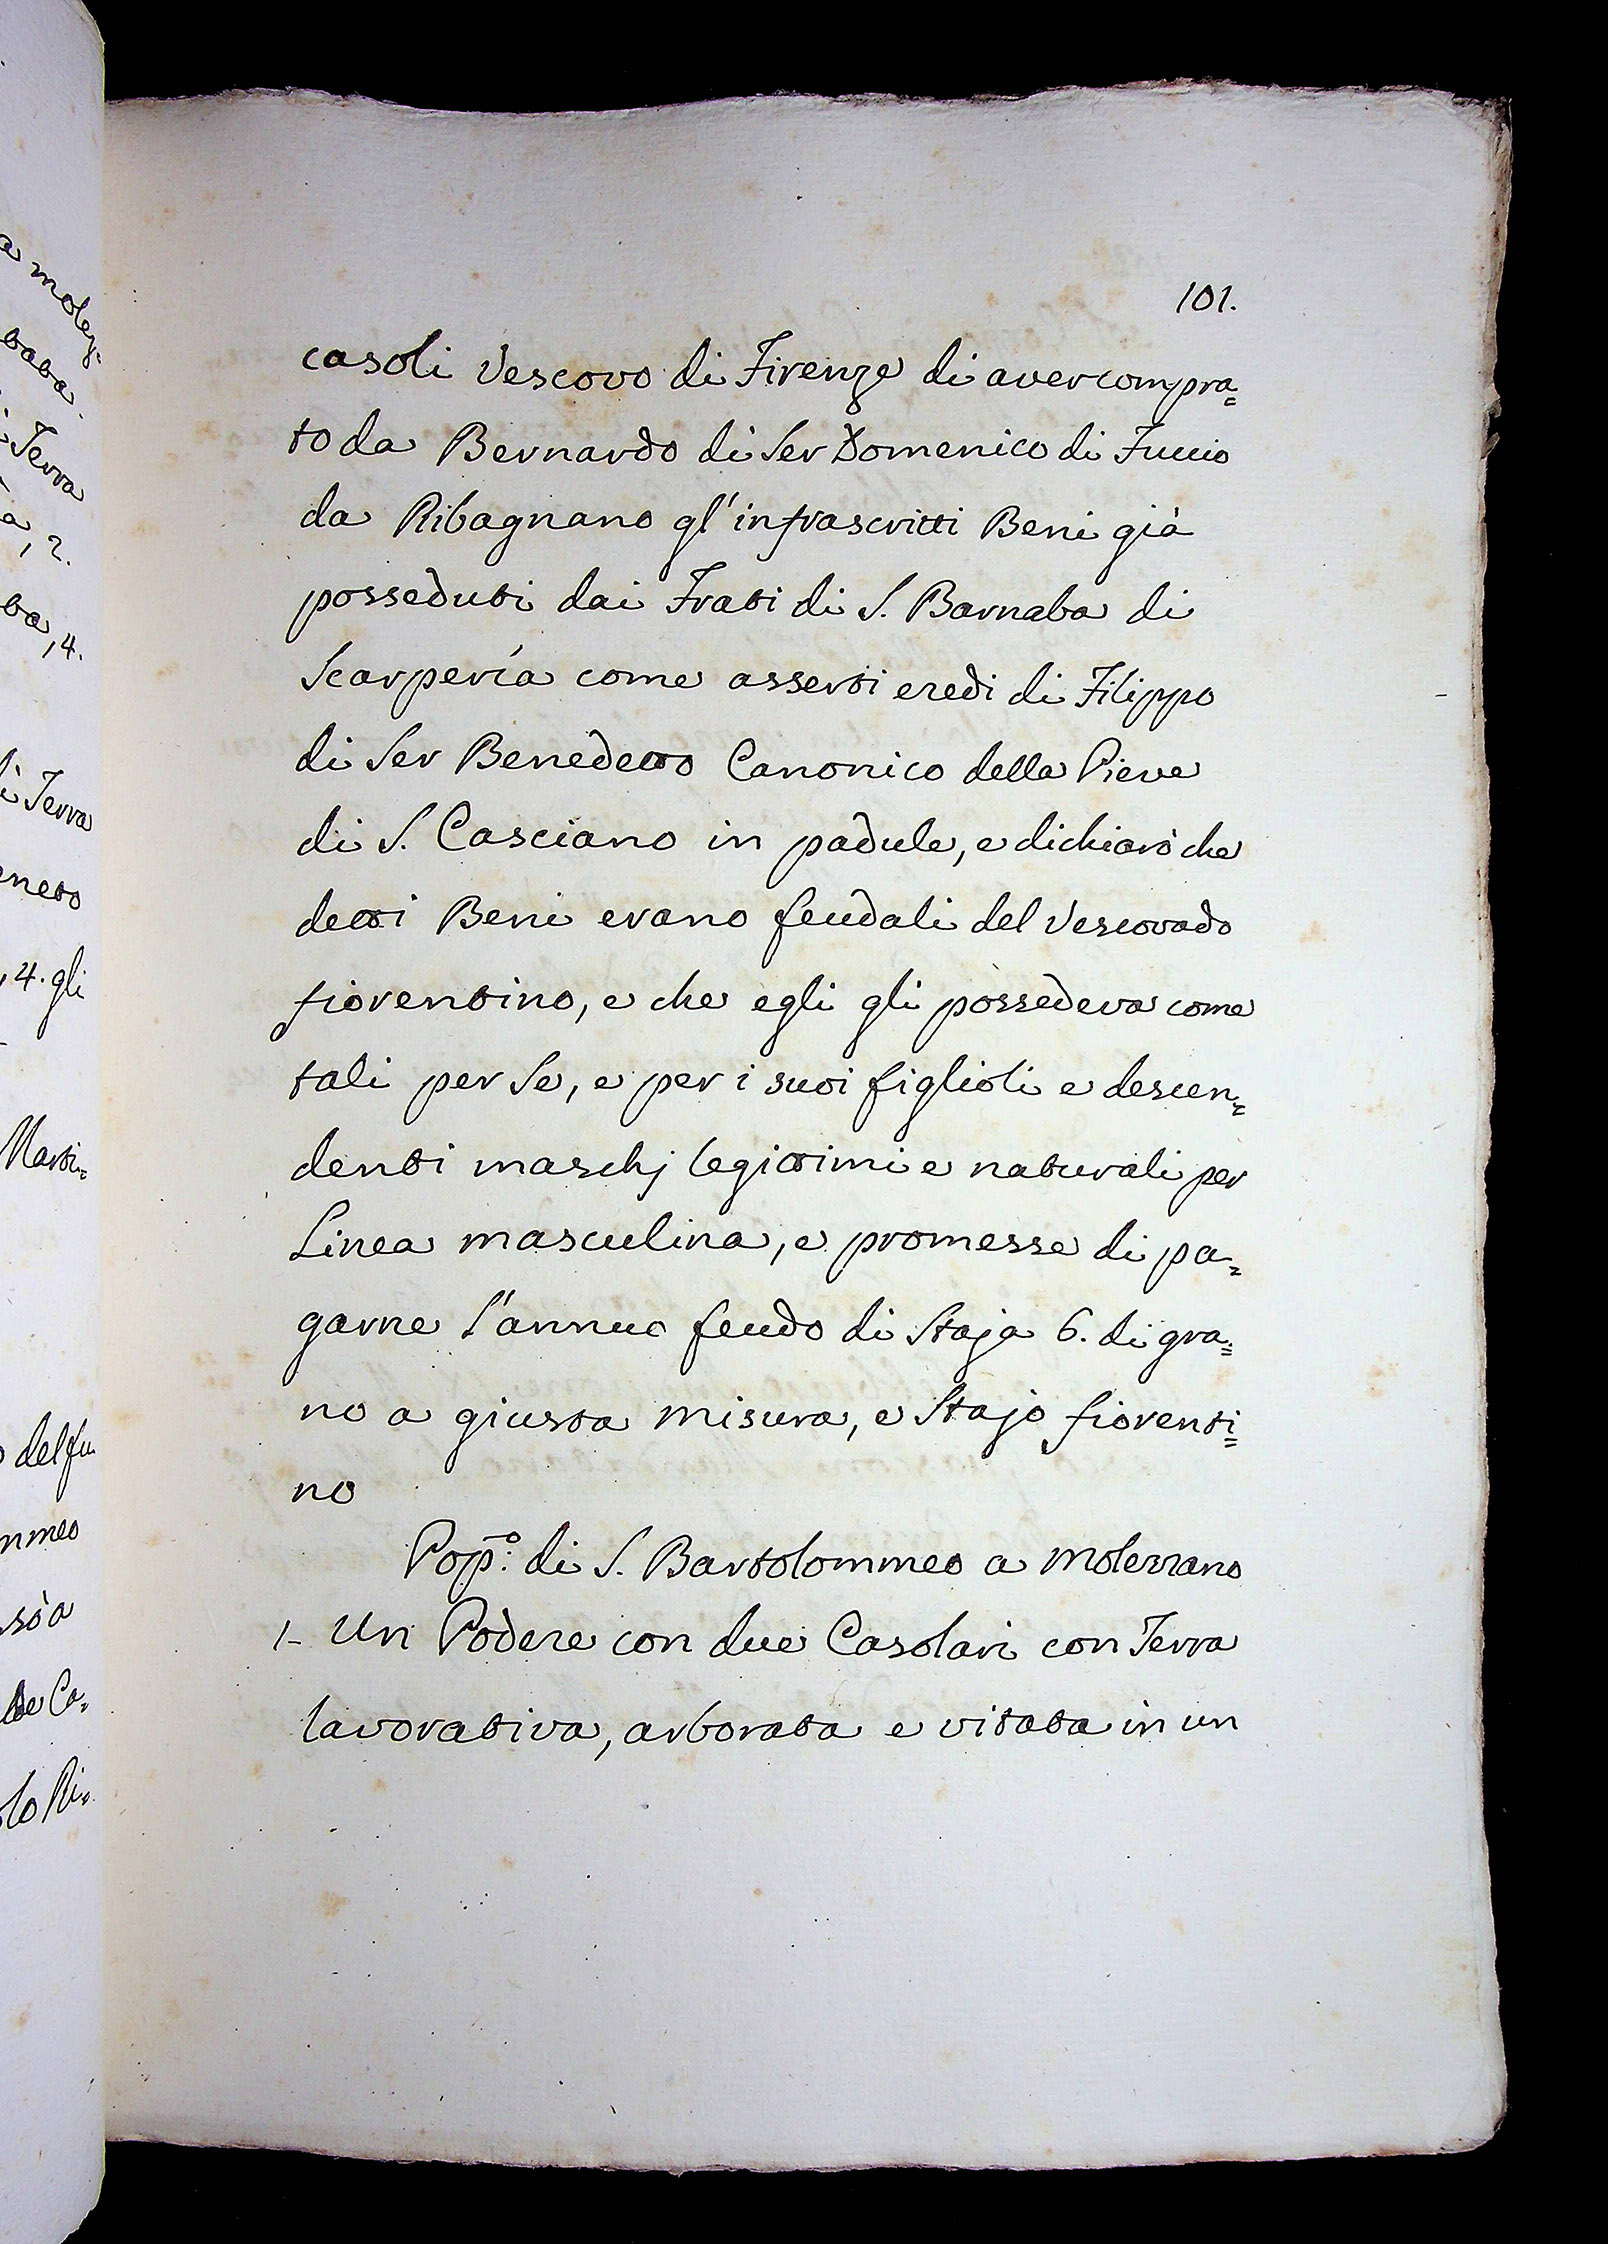 101.
casoli Vescovo di Firenze di aver compra=
to da Bernardo di Ser Domenico di Fuccio
da Ribagnano gl'infrascritti Beni già
posseduti dai Frati di S. Barnaba di
Scarpería come asserti eredi di Filippo
di Ser Benedetto Canonico della Pieve
di S. Casciano in padule, e dichiarò che
detti Beni erano feudali del Vescovado
fiorentino, e che egli gli possedeva come
tali per se, e per i suoi figlioli e descen=
denti maschj legittimi e naturali per
Linea masculina, e promesse di pa=
garne l'annuo feudo di Staja 6. di gra=
no a giusta misura, e Stajo fiorenti=
no
Pop.º di S. Bartolommeo a Molezzano
1- Un Podere con due Casolari con Terra
lavorativa, arborata e vitata in un